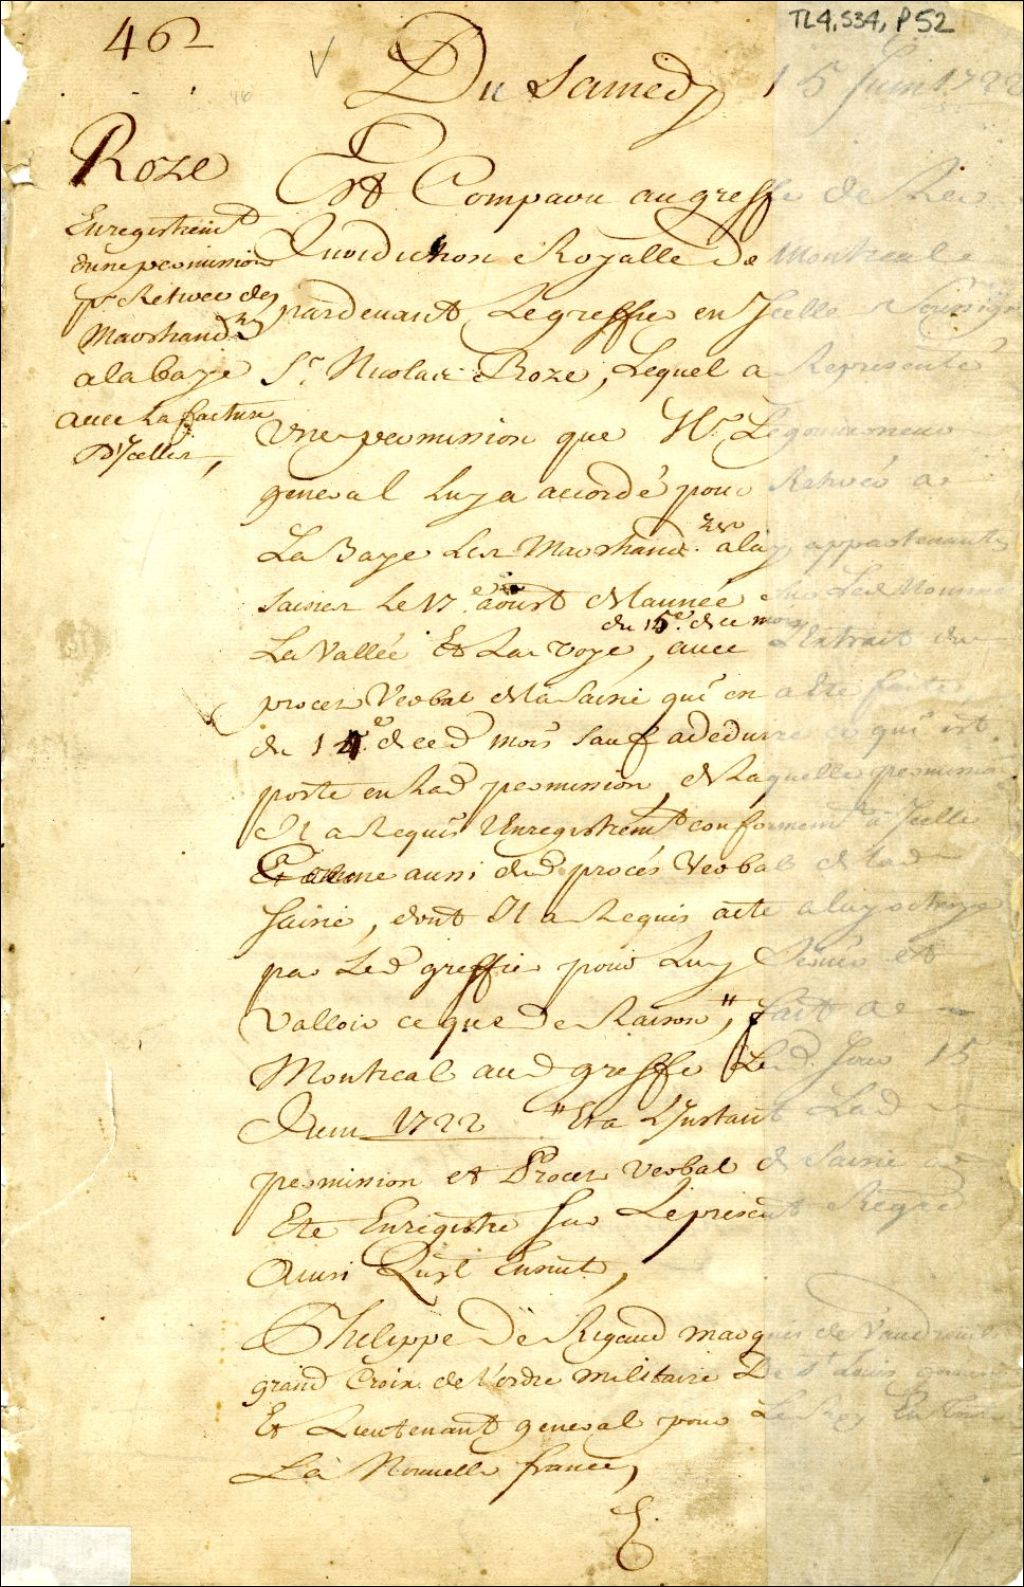 TL4, S34, P52
462
Du Samedy 15 Juin 1722
Roze
Enregistremt
dune permission
pr Retirer des
Marchandzes
a la baye
avec La facture
D'Jcelles,
Est Comparu au greffe de
Jurediction Royalle de Montreal
pardevant Le greffier en Jcelle Soussigné
Sr. Nicolas Roze, Lequel a Representé
Vne permission que Mr. Le gouverneur
general Luy a accordé pour Retirer a
La Baye Les Marchandzes a luy appartenante
saisies Le 17e aoust de L'année
du 15e de ce mois
La Vallée Et La voye, avec L'Extrait du
procez Verbal de la Saisie qui en a Ete faite
du 15e de ced mois sauf a deduire ce qui est
porté en Lad permission, de Laquelle permission
Il a Requis Enregistremt conformemt a Jcelle
Et comme aussi dud procés Verbal de lad
saisie, dont Il a Requis acte a luy octroyé
par Led greffier pour Luy Servir et
Valloir ce que de Raison", fait a
Montreal aud greffe Led. Jour 15
Juin 1722 "Et a L'Instant Lad
permission et Procez verbal de Saisie a
Eté Enregistré sur Le present Regre
Ainsi Qu'il Ensuit,
Philippe De Rigaud marquis de Vaudreuil
grand Croix de l'ordre militaire De St Louis gouverneur
Et Lieutenant general pour Le Roy En toute
La Nouvelle france,